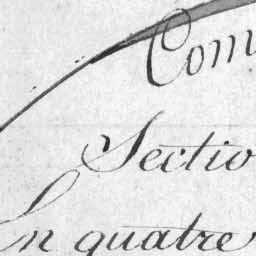 Com
Sectio
En quatre